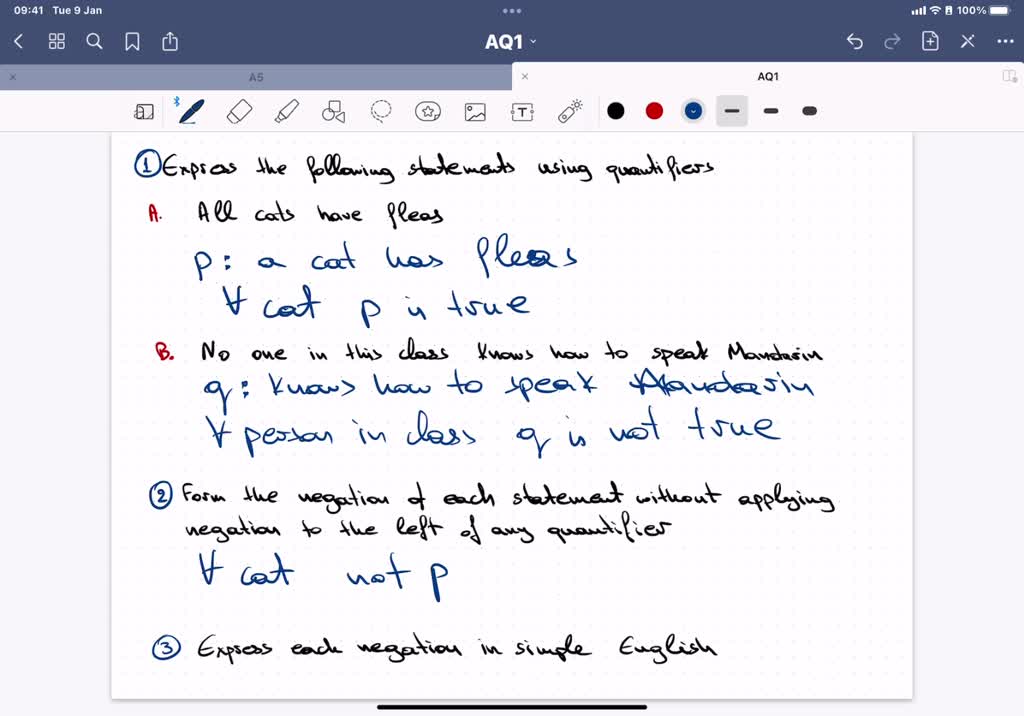 09:41 Tue 9 Jan
100%
AQ1
A5
AQ1
1 Express the following statements using quantifiers
A. All cats have fleas
p: a cat has fleas
∀ cat p is true
B. No one in this class knows how to speak Mandarin
q: knows how to speak Mandarin
∀ person in class q is not true
2 Form the negation of each statement without applying
negation to the left of any quantifier
∀ cat not p
3 Express each negation in simple English